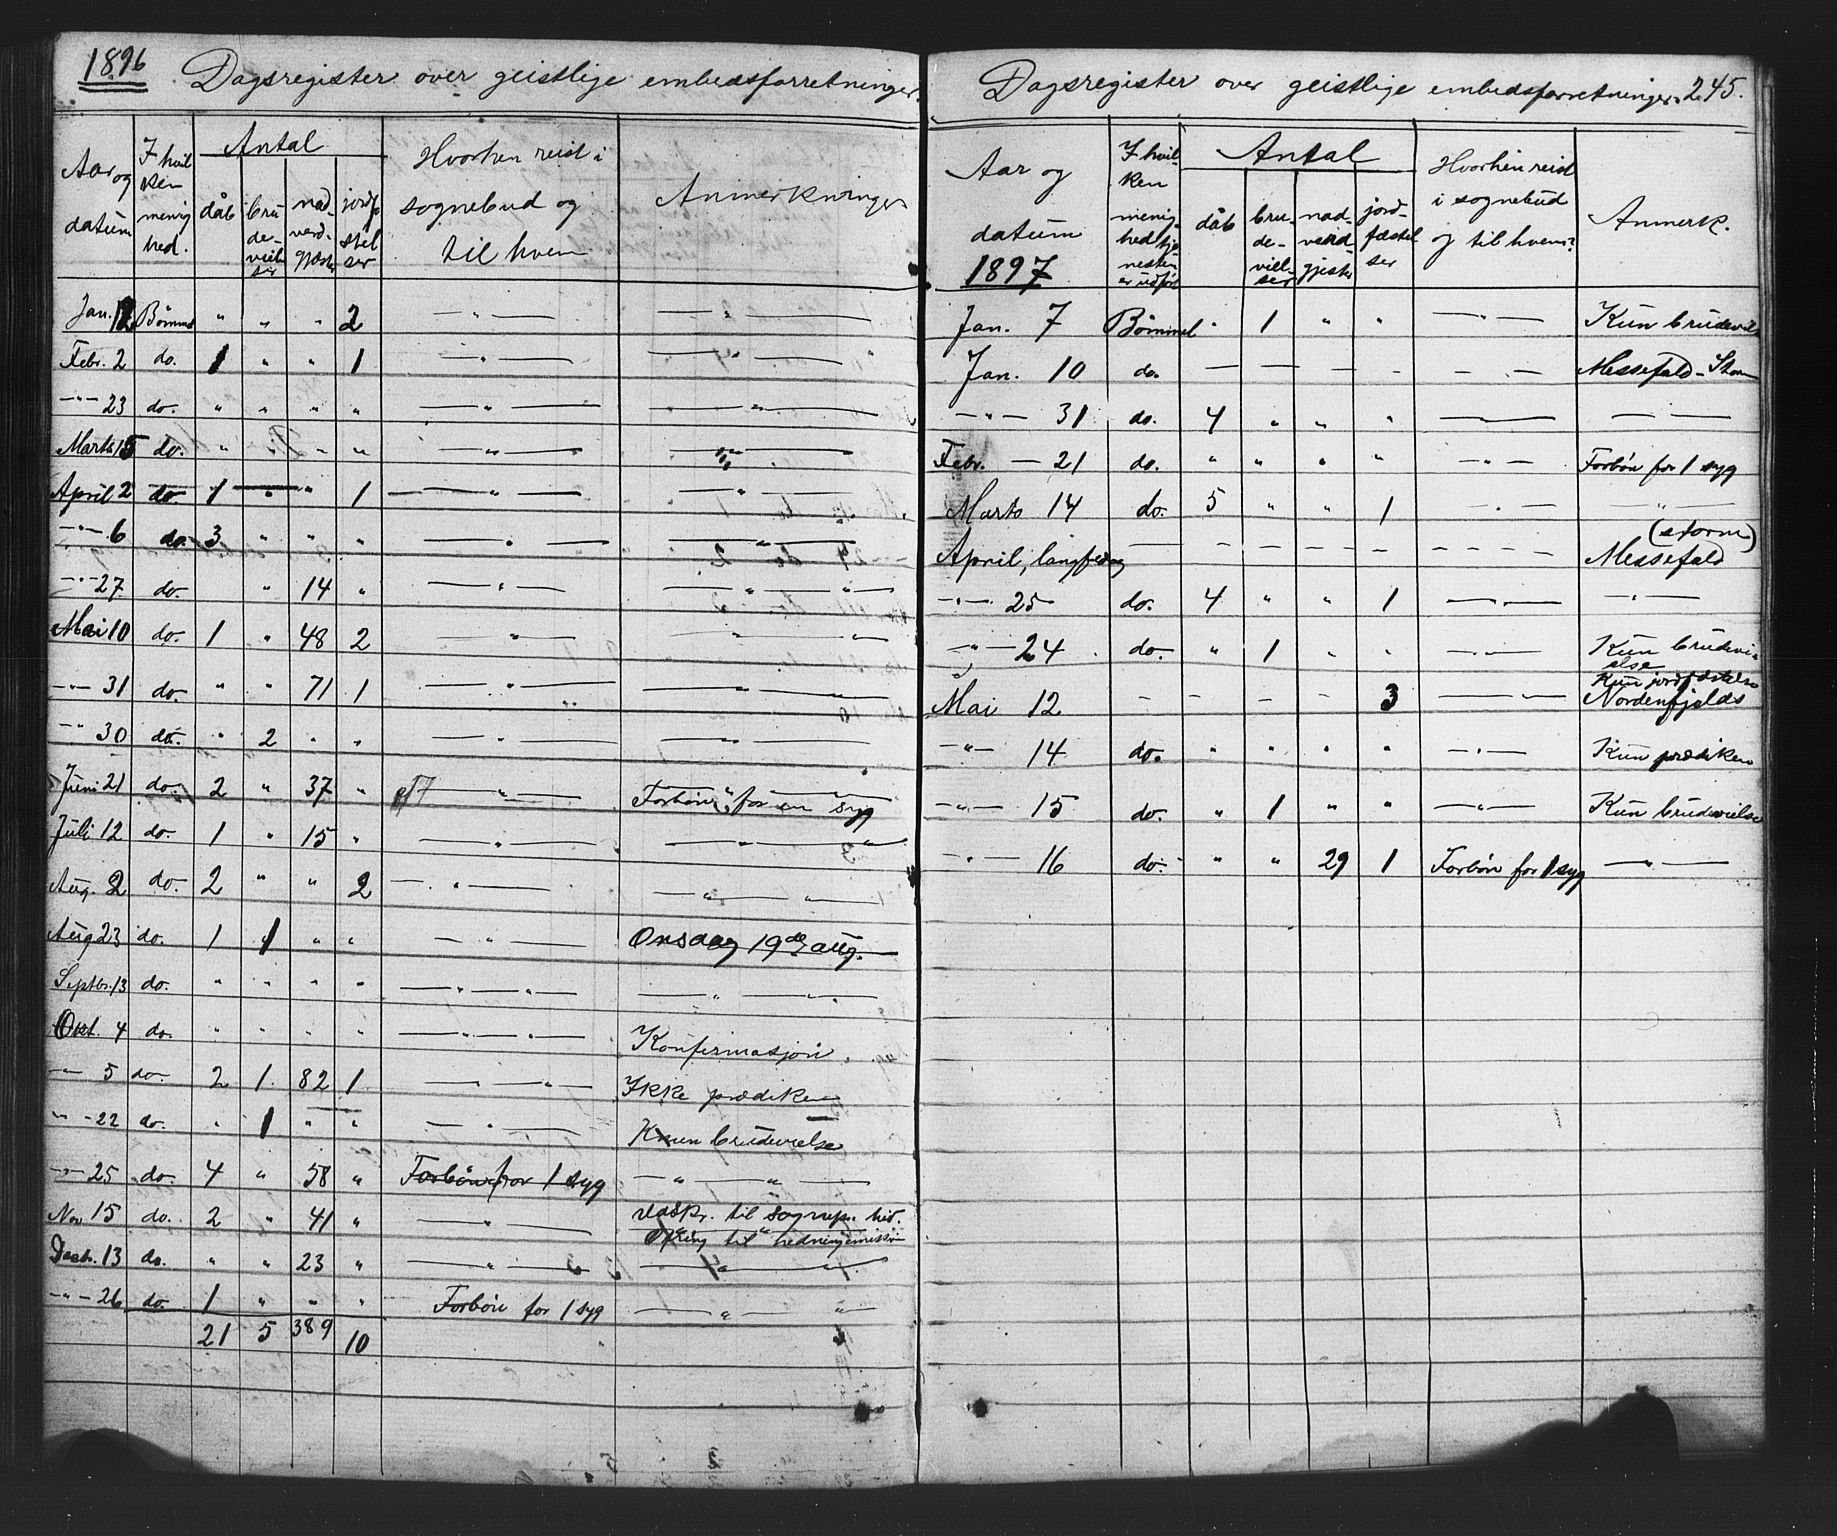 1896 Dagsregister over geistlige embedsforretninger.
Aar og datum | I hvilken menighed. | Antal: dåb | brudevielser | nadverdgjester | jordfæstelser | Hvorhen reist i sognebud og til hvem | Anmerkninger
Jan. 12 Bømmel " " " 2 — " — — " —
Febr. 2 do. 1 " " 1 — " — — " —
— " — 23 do. " " " " — " — — " —
Marts 15 do. " " " " — " — — " —
April 2 do 1 " " 1 — " — — " —
— " — 6 do. 3 " " " — " — — " —
— " — 27 do. " 14 " — " — — " — " —
Mai 10 do. 1 " 48 2 — " — — " — "
— " — 31 do. " " 71 1 — " — — " — " —
— " 30 do. " 2 " " — " — — " —
Juni 21 do. 2 " 37 " — " — Forbøn for en syg
Juli 12 do. 1 " 15 " — " — — " — "
Aug. 2 do. 2 " " 2 — " — — " — " —
Aug 23 do. 1 1 " " — " — Onsdag 19de aug.
Septbr. 13 do. " " " " — " — " — — " — " —
Okt. 4 do. " " " " — " — " — Konfirmasjon
— " — 5 do. 2 1 82 1 — " — " — Ikke prædiken
— " — 22 do. " 1 " " — " — Kun brudevielse
— " — 25 do. 4 " 58 " Forbøn for 1 syg — " — " —
Nov. 15 do. 2 " 41 " — " — til sognepr. hid.
til hedningemiss
Decbr. 13 do. " " 23 " — " — — " — " —
— " — 26 do. 1 " " " Forbøn for 1 syg — " — "
21 5 389 10
Dagsregister over geistlige embedsforretninger. 245.
Aar og datum 1897 | I hvilken menighed tjenesten er udført | Antal: dåb | brudevielser | nadverdgjester | jordfæstelser | Hvorhen reist i sognebud og til hvem? | Anmerk.
Jan. 7 Bømmel " 1 " " — " — Kun brudeviels
Jan. 10 do. — — — — — — — Messefald – Storm
— " — 31 do. 4 " " " — " — — " —
Febr. — 21 do. " " " " — " — Forbøn for 1 syg
Marts 14 do. 5 " " 1 — " — — " —
April, langfredag — — — — — — — (storm)
Messefald
— " — 25 do. 4 " " 1 — " — — " —
— " — 24 do. " 1 " " — " — Kun brudevi-
else
Mai 12 — — — — 3 — " — Kun jordfæstelse
Nordenfjelds
— " — 14 do. " " " " — " — Kun prædiken
— " — 15 do. " 1 " " — " — Kun brudevielse
— " — 16 do. " " 29 1 Forbøn for 1 syg — " —